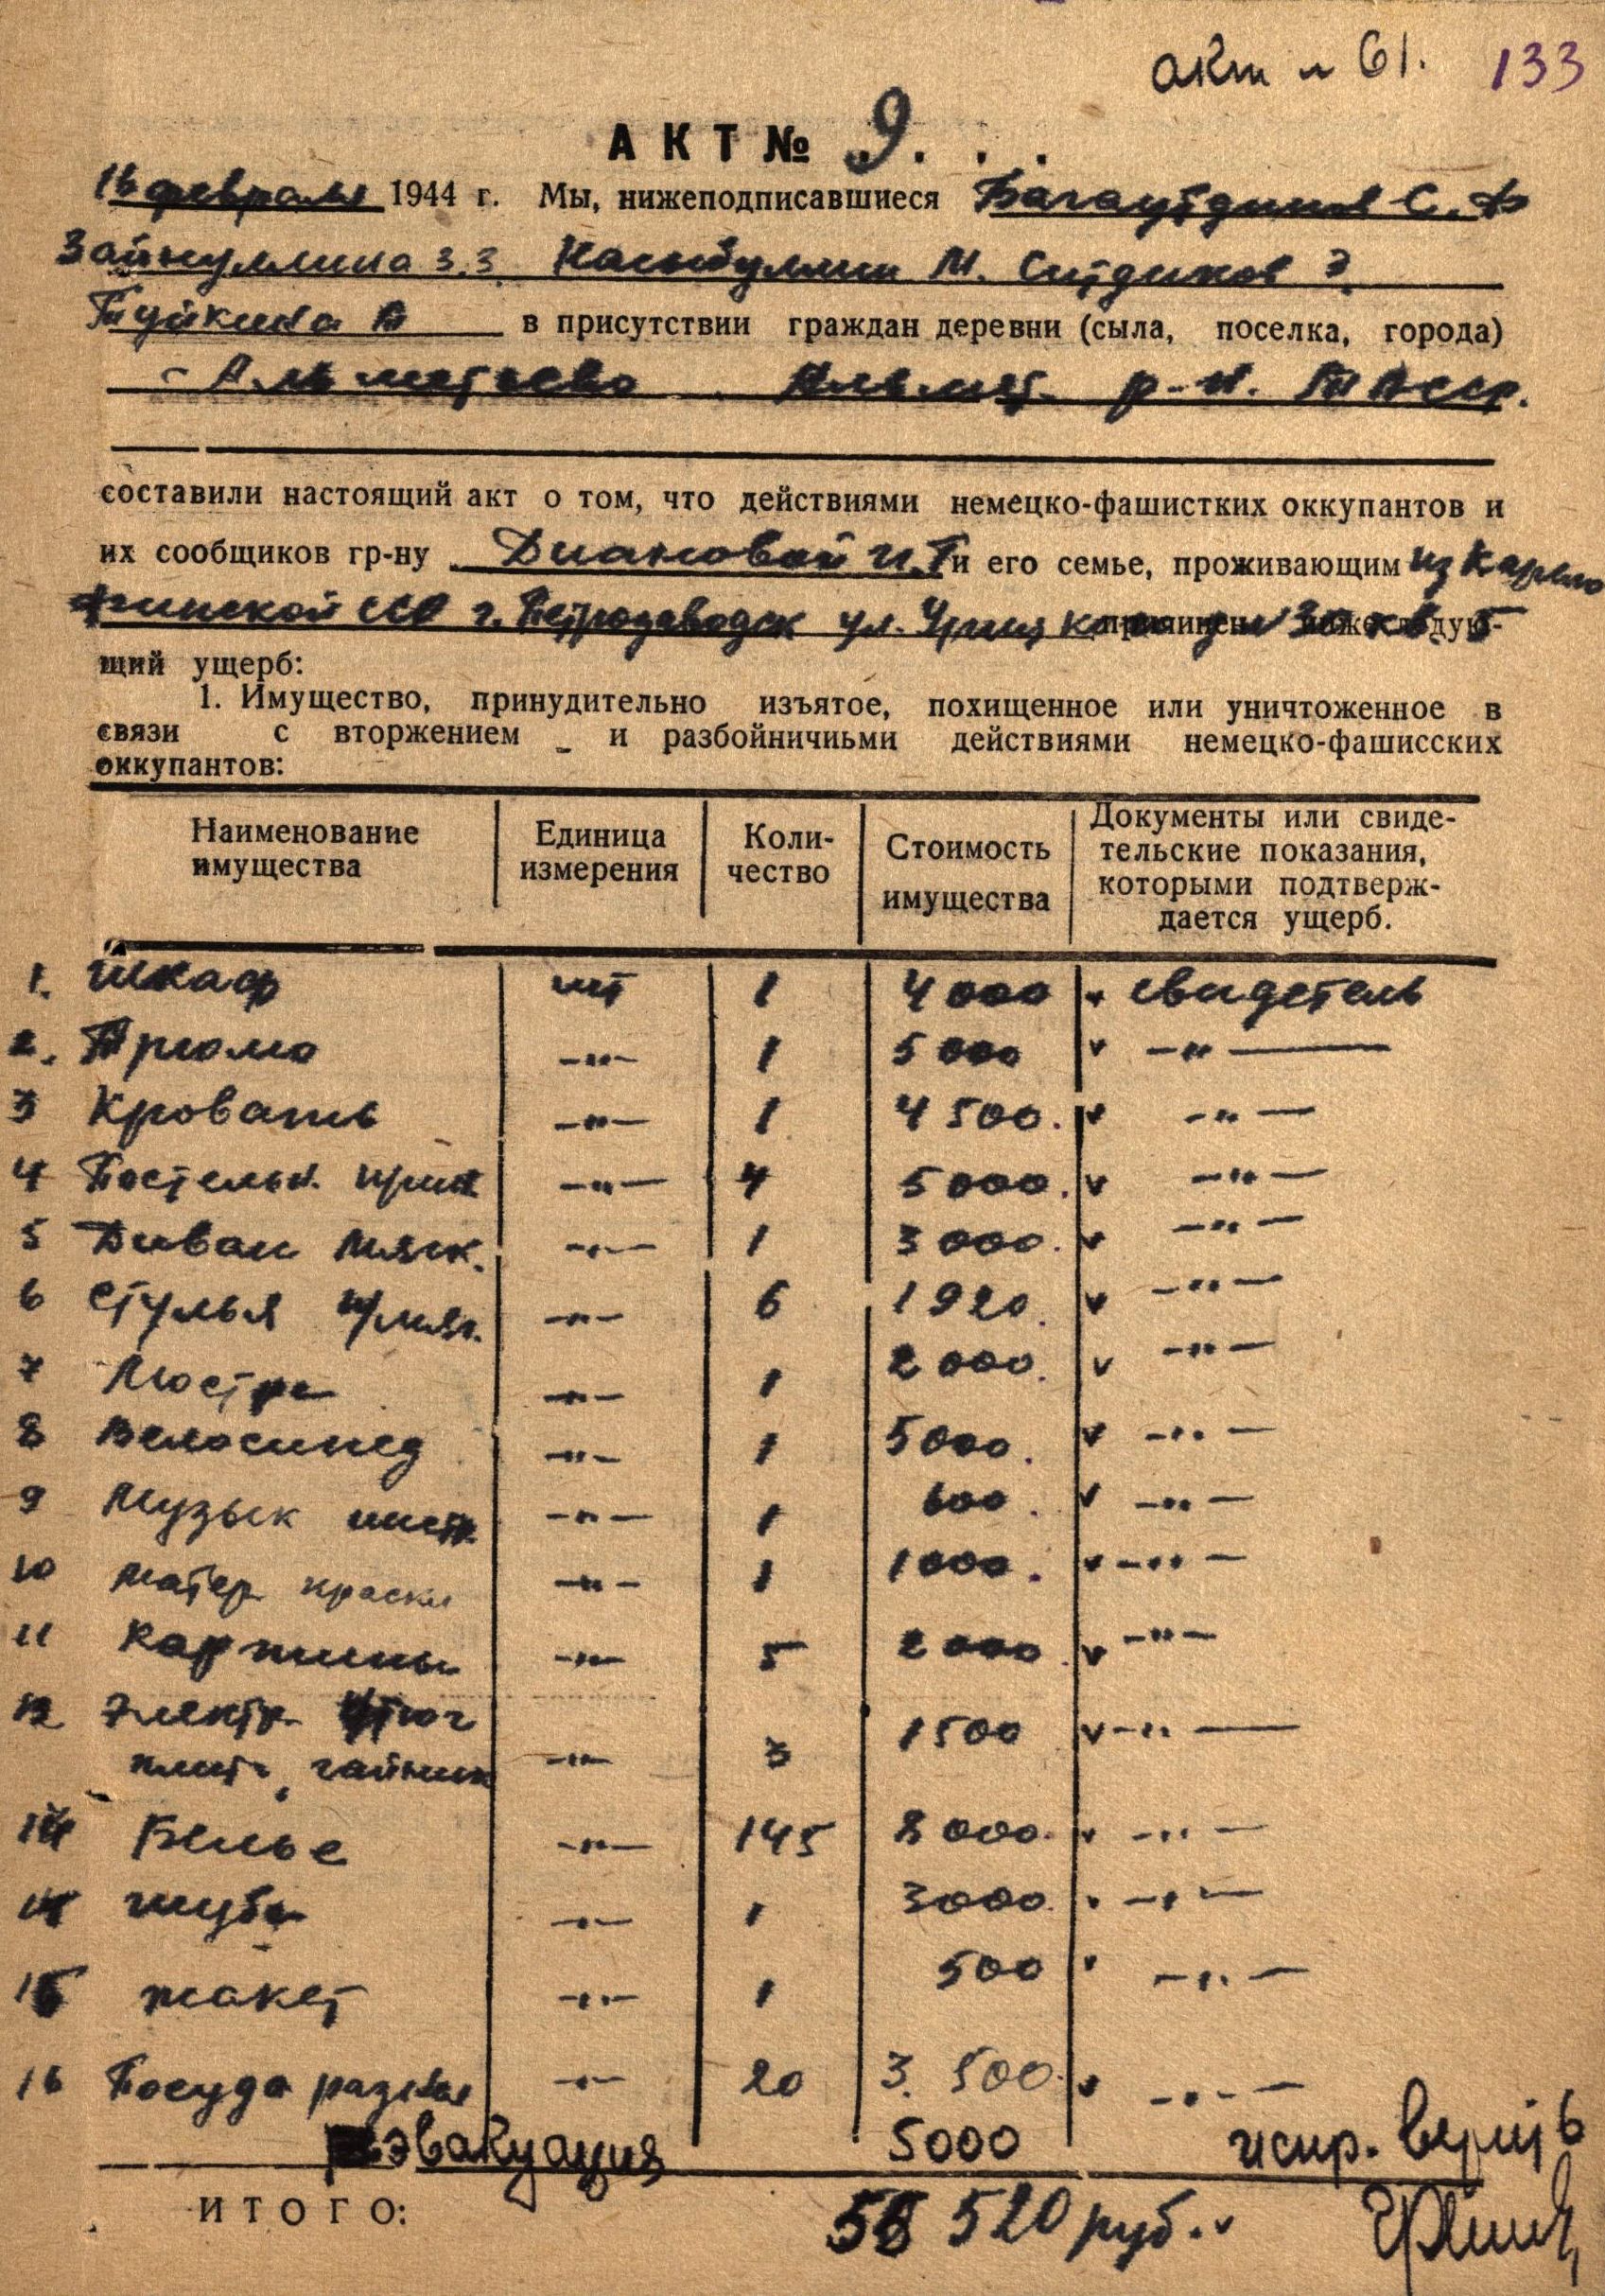 акт № 61. 133
АКТ № 9...
16 февраля 1944 г. Мы, нижеподписавшиеся Багаутдинов С. Ф
Зайнуллина З.З. Насибуллин М. Ситдиков Э.
Туйкина А в присутствии граждан деревни (сыла, поселка, города)
- Альметьево Альмет. р-н. ТАССР.
составили настоящий акт о том, что действиями немецко-фашистких оккупантов и
их сообщиков гр-ну Диановой И.Т и его семье, проживающим из Карело
Финской ССР г. Петрозаводск ул. Урицкого д 30 кв. 5 причинен нижеследую-
щий ущерб:
1. Имущество, принудительно изъятое, похищенное или уничтоженное в
связи с вторжением и разбойничиьми действиями немецко-фашисских
оккупантов:
Наименование имущества Единица измерения Коли-чество Стоимость имущества Документы или свиде-тельские показания, которыми подтверж-дается ущерб.
1. Шкаф шт 1 4000 v свидетель
2. Трюмо -"- 1 5000 v -"-
3 Кровать -"- 1 4500. v -"-
4 Постельн. прин -"- 4 5000. v -"-
5 Диван мягк. -"- 1 3000. v -"-
6 Стулья п/мяг. -"- 6 1920. v -"-
7 Люстра -"- 1 2000. v -"-
8 Велосипед -"- 1 5000. v -"-
9 Музык инстр. -"- 1 600. v -"-
10 Матер краски -"- 1 1000. v -"-
11 Картины -"- 5 2000. v -"-
12 Электр. Утюг
плит, чайник -"- 3 1500 v -"-
Белье -"- 145 8000. v -"-
14 шуба -"- 1 3000. -"-
15 жакет -"- 1 500 -"-
16 Посуда разная -"- 20 3. 500. v -"-
эвакуация 5000 испр. верить
ИТОГО: 520 руб. v